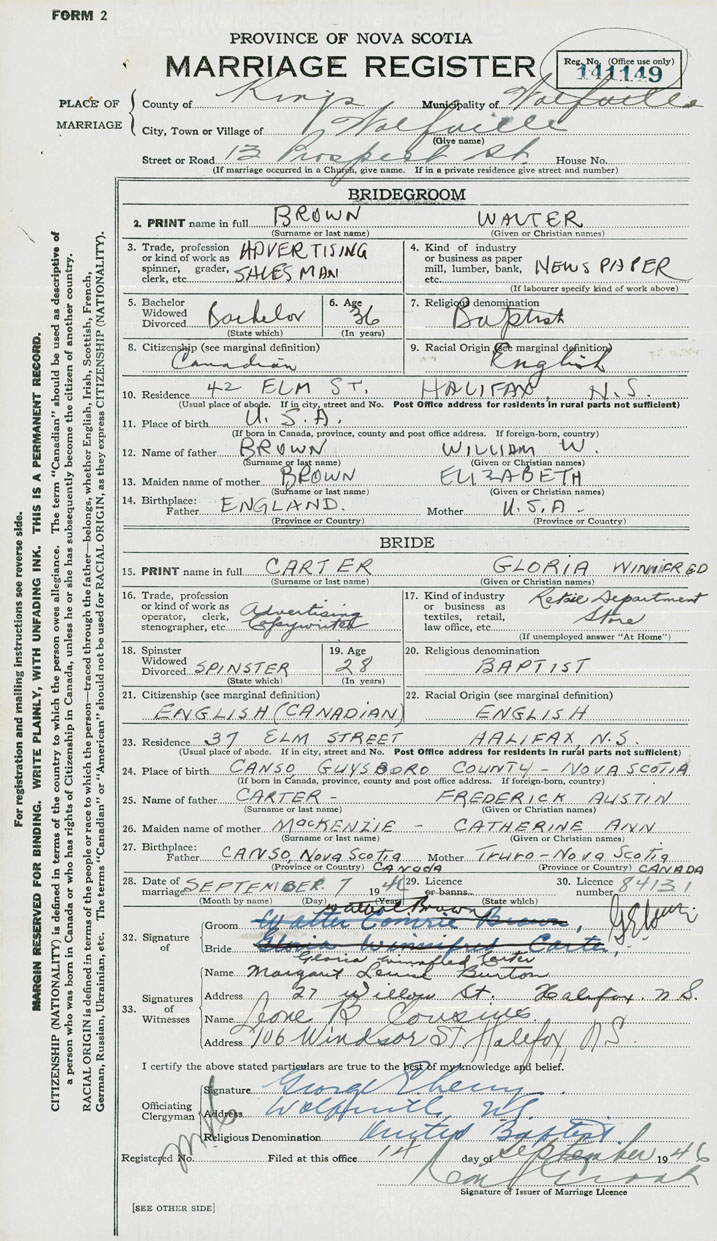 FORM 2
PROVINCE OF NOVA SCOTIA
MARRIAGE REGISTER
Reg. No. (Office use only)
141149
PLACE OF MARRIAGE
County of Kings Municipality of Wolfville
City, Town or Village of Wolfville
(Give name)
Street or Road 13 Prospect St. House No.
(If marriage occurred in a Church, give name. If in a private residence give street and number)
BRIDEGROOM
2. PRINT name in full BROWN WALTER
(Surname or last name) (Given or Christian names)
3. Trade, profession or kind of work as spinner, grader, clerk, etc. ADVERTISING SALESMAN
4. Kind of industry or business as paper mill, lumber, bank, etc. NEWSPAPER
(If labourer specify kind of work above)
5. Bachelor Widowed Divorced Bachelor
(State which)
6. Age 36
(In years)
7. Religious denomination Baptist
8. Citizenship (see marginal definition) Canadian
9. Racial Origin (see marginal definition) English
10. Residence 42 ELM ST. HALIFAX, N.S.
(Usual place of abode. If in city, street and No. Post Office address for residents in rural parts not sufficient)
11. Place of birth U.S.A.
(If born in Canada, province, county and post office address. If foreign-born, country)
12. Name of father BROWN WILLIAM W.
(Surname or last name) (Given or Christian names)
13. Maiden name of mother BROWN ELIZABETH
(Surname or last name) (Given or Christian names)
14. Birthplace: Father ENGLAND. Mother U.S.A -
(Province or Country) (Province or Country)
BRIDE
15. PRINT name in full CARTER GLORIA WINNIFRED
(Surname or last name) (Given or Christian names)
16. Trade, profession or kind of work as operator, clerk, stenographer, etc. Advertising Copywriter
17. Kind of industry or business as textiles, retail, law office, etc. Retail Department Store
(If unemployed answer "At Home")
18. Spinster Widowed Divorced SPINSTER
(State which)
19. Age 28
(In years)
20. Religious denomination BAPTIST
21. Citizenship (see marginal definition) ENGLISH (CANADIAN)
22. Racial Origin (see marginal definition) ENGLISH
23. Residence 37 ELM STREET HALIFAX, N.S.
(Usual place of abode. If in city, street and No. Post Office address for residents in rural parts not sufficient)
24. Place of birth CANSO GUYSBORO COUNTY - NOVA SCOTIA
(If born in Canada, province, county and post office address. If foreign-born, country)
25. Name of father CARTER - FREDERICK AUSTIN
(Surname or last name) (Given or Christian names)
26. Maiden name of mother MACKENZIE - CATHERINE ANN
(Surname or last name) (Given or Christian names)
27. Birthplace: Father CANSO, NOVA SCOTIA Mother TRURO - NOVA SCOTIA
(Province or Country) CANADA (Province or Country) CANADA
28. Date of marriage SEPTEMBER 7 1946
(Month by name) (Day) (Year)
29. Licence or banns
(State which)
30. Licence number 84131
32. Signature of
Groom Walter Brown
Walter Comrie Brown,
Bride Gloria Winnifred Carter,
Gloria Winnifred Carter
33. Signatures of Witnesses
Name Margaret Louise Burton
Address 27 Willow St. Halifax. N.S.
Name Ione R Cousins
Address 106 Windsor St Halifax, N.S.
I certify the above stated particulars are true to the best of my knowledge and belief.
Officiating Clergyman
Signature George E
Address Wolfville, NS
Religious Denomination United Baptist
Registered No. Filed at this office 14 day of September 1946
Signature of Issuer of Marriage Licence
[SEE OTHER SIDE]
For registration and mailing instructions see reverse side.
MARGIN RESERVED FOR BINDING. WRITE PLAINLY, WITH UNFADING INK. THIS IS A PERMANENT RECORD.
CITIZENSHIP (NATIONALITY) is defined in terms of the country to which the person owes allegiance. The term "Canadian" should be used as descriptive of
a person who was born in Canada or who has rights of Citizenship in Canada, unless he or she has subsequently become the citizen of another country.
RACIAL ORIGIN is defined in terms of the people or race to which the person—traced through the father—belongs, whether English, Irish, Scottish, French,
German, Russian, Ukrainian, etc. The terms "Canadian" or "American" should not be used for RACIAL ORIGIN, as they express CITIZENSHIP (NATIONALITY).